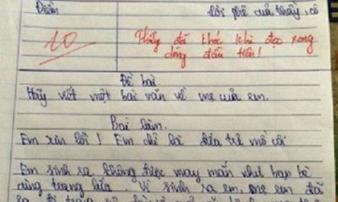 Điểm
Lời phê của thầy, cô
10
Thầy đã khóc khi đọc xong
dòng đầu tiên!
Đề bài
Hãy viết một bài văn về mẹ của em.
Bài làm.
Em xin lỗi! Em chỉ là đứa trẻ mồ côi
Em sinh ra không được may mắn như bạn bè
cùng trang lứa. Vì sinh ra em, mẹ em đã